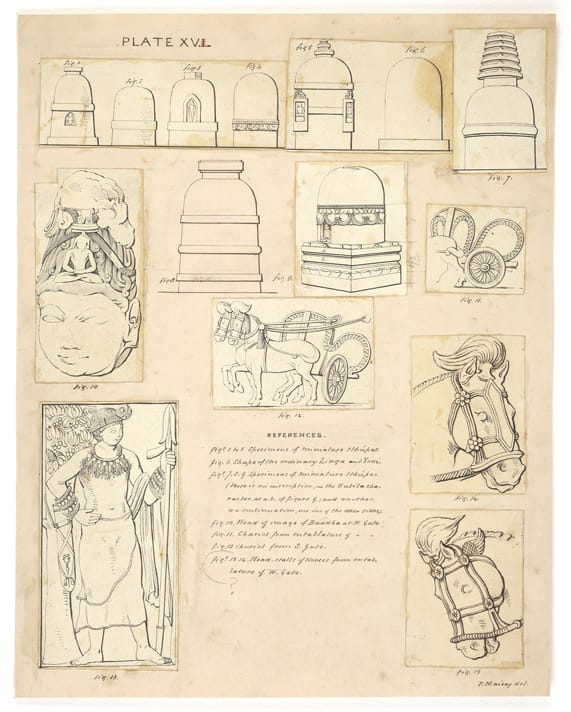 PLATE XVI.
fig. 1
fig. 2
fig. 3
fig. 4
fig. 5
fig. 6
fig. 7.
fig. 8
fig. 9.
fig. 10
fig. 11.
fig. 12.
REFERENCES.
figs 1 to 5 Specimens of miniature Sthúpas.
fig. 6 Shape of the ordinary Linga and Yoni.
figs 7, 8, 9 Specimens of miniature Sthúpas.
(there is an inscription, in the Kutila cha-
racter, at a. b. of figure 9; and another,
a continuation, on one of the other sides).
fig. 10. Head of image of Buddha at N. Gate.
fig. 11. Chariot from entablature of " "
fig. 12 Chariot from S. Gate.
figs 13. 14. Head-stalls of horses from entab-
lature of W. Gate.
?
fig. 13.
fig. 14.
fig. 15
F. Maisey del.